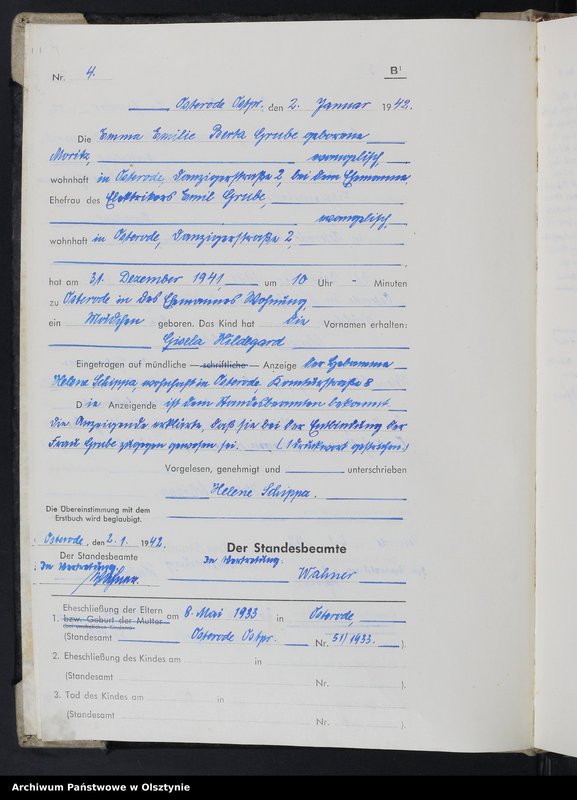 Nr. 4. B¹
Osterode Ostpr., den 2. Januar 1942.
Die Emma Emilie Berta Grube geborene
Moritz, evangelisch,
wohnhaft in Osterode, Danzigerstraße 2, bei dem Ehemanne,
Ehefrau des Elektrikers Emil Grube,
evangelisch,
wohnhaft in Osterode, Danzigerstraße 2,
hat am 31. Dezember 1941, um 10 Uhr - Minuten
zu Osterode in des Ehemannes Wohnung,
ein Mädchen geboren. Das Kind hat die Vornamen erhalten:
Gisela Hildegard
Eingetragen auf mündliche — schriftliche — Anzeige der Hebamme
Helene Schippa, wohnhaft in Osterode, Komturstraße 8
Die Anzeigende ist dem Standesbeamten bekannt.
Die Anzeigende erklärte, daß sie bei der Entbindung der
Frau Grube zugegen gewesen sei. (1 Druckwort gestrichen.)
Vorgelesen, genehmigt und unterschrieben
Helene Schippa.
Die Übereinstimmung mit dem
Erstbuch wird beglaubigt.
Osterode, den 2. 1. 1942.
Der Standesbeamte
In Vertretung:
Wahner
Der Standesbeamte
In Vertretung:
Wahner
1. Eheschließung der Eltern
bzw. Geburt der Mutter
am 8. Mai 1933 in Osterode,
(Standesamt Osterode Ostpr. Nr. 51/1933.)
2. Eheschließung des Kindes am in
(Standesamt Nr. ).
3. Tod des Kindes am in
(Standesamt Nr. ).
Archiwum Państwowe w Olsztynie